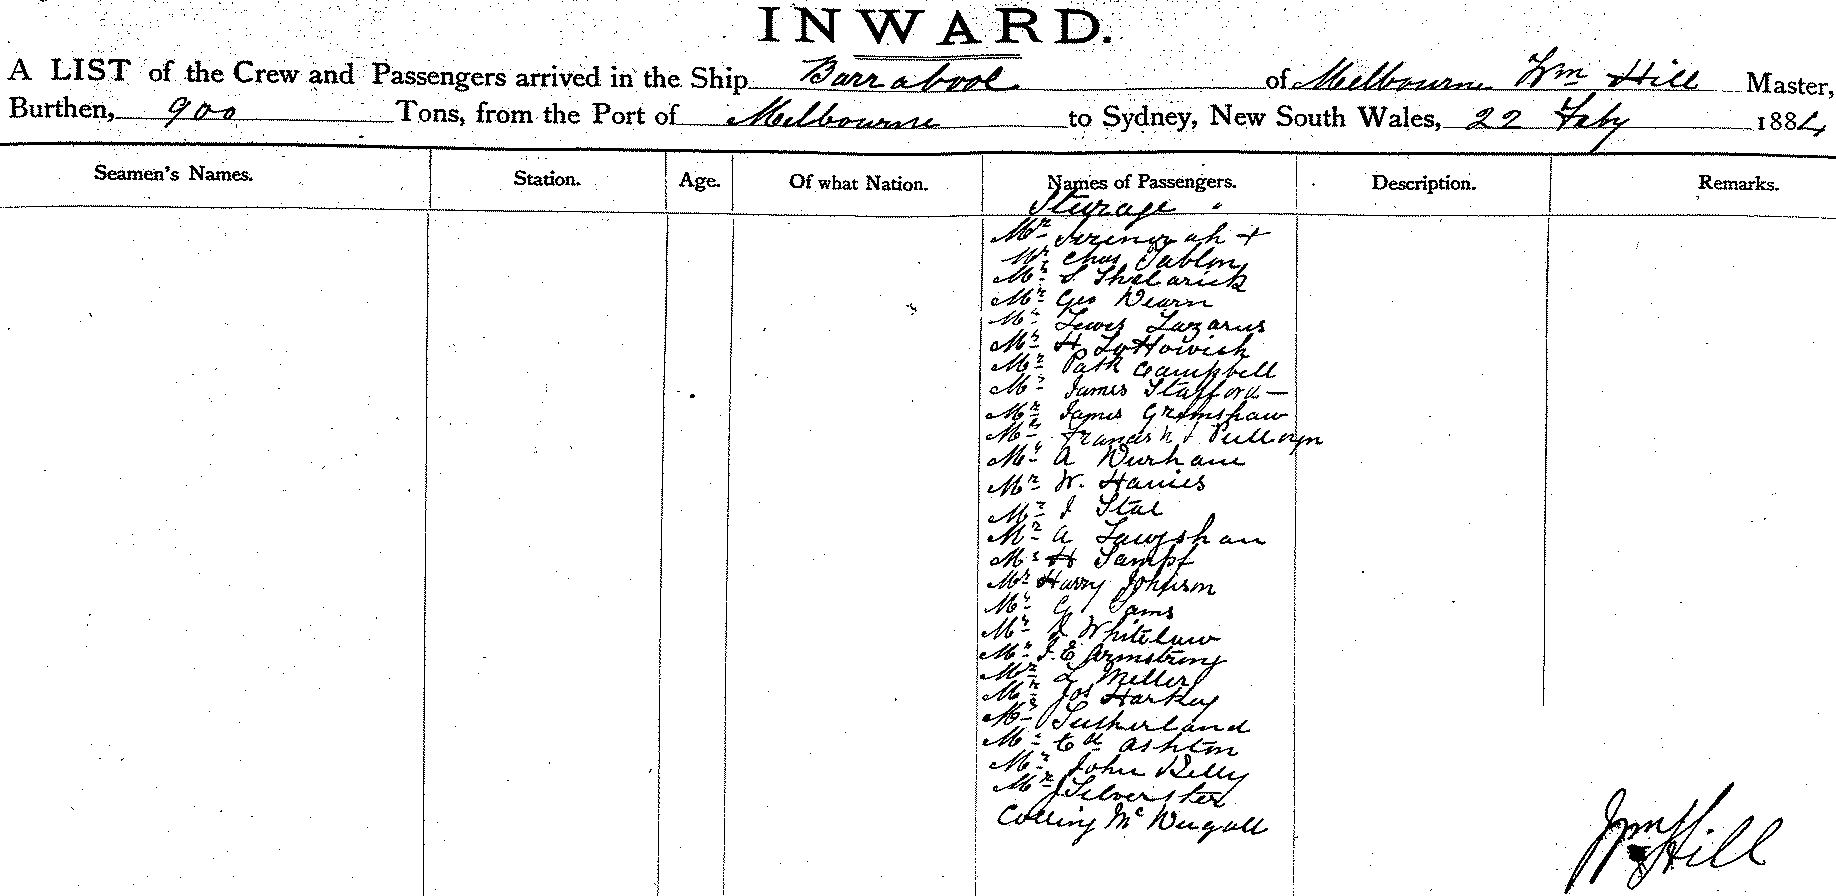 INWARD.
A LIST of the Crew and Passengers arrived in the Ship Barrabool of Melbourne Wm Hill Master,
Burthen, 900 Tons, from the Port of Melbourne to Sydney, New South Wales, 22 Feby 1884
Seamen's Names. Station. Age. Of what Nation. Names of Passengers. Description. Remarks.
Sturage "
Mr
Mr Chas
Mr S
Mr Geo
Mr Lewis Lazarus
Mr H
Mr Patk Campbell
Mr James Stafford —
Mr James Grimshaw
Mr Francis
Mr A Durham
Mr W. Harries
Mr J Star
Mr A
Mr H Sampf
Mr Harry Johnson
Mr G Sams
Mr R Whitelaw
Mr J. E Armstrong
Mr L Miller
Mr Jos Harkey
Mr Sutherland
Mr Ed Ashton
Mr John Kelly
Mr Silverster
Colling Mc Dugall
Wm Hill